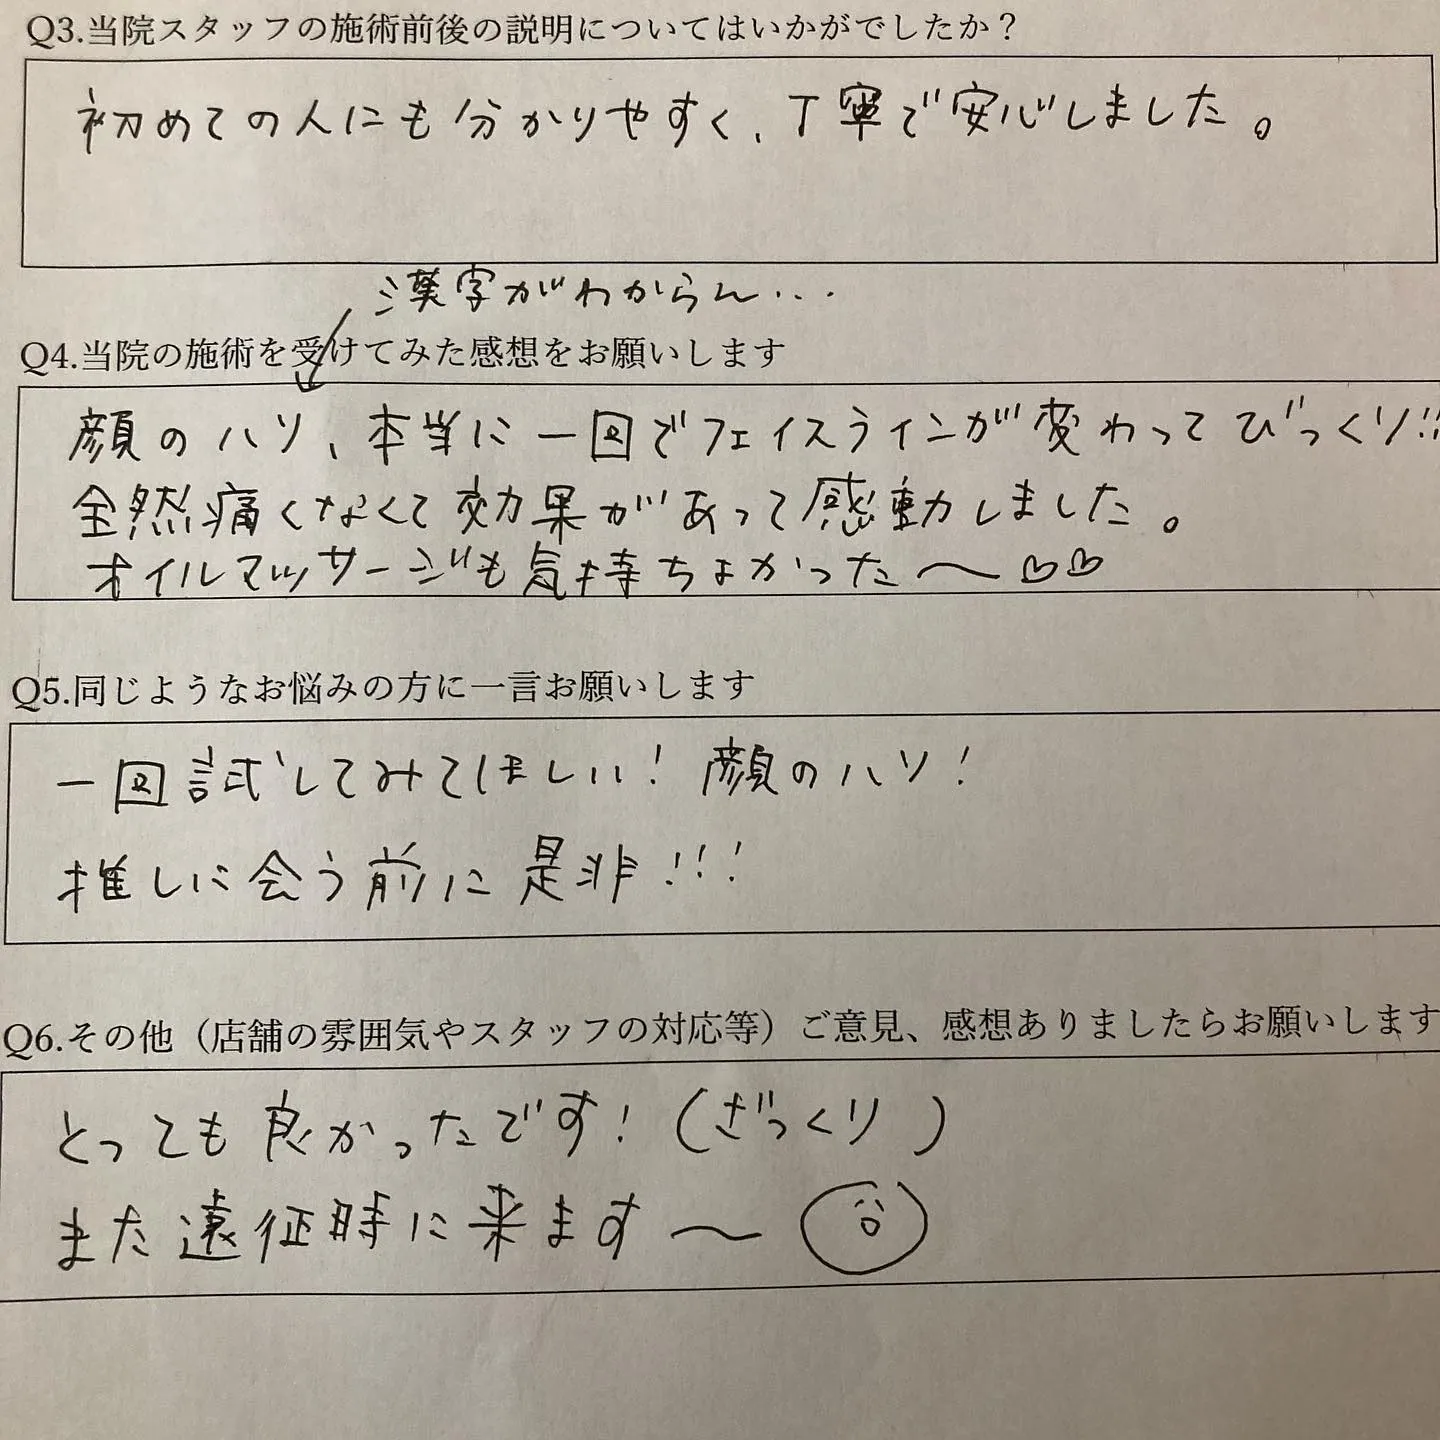 Q3.当院スタッフの施術前後の説明についてはいかがでしたか？
初めての人にも分かりやすく、丁寧で安心しました。
漢字がわからん...
Q4.当院の施術を受けてみた感想をお願いします
顔のハリ、本当に一回でフェイスラインが変わってびっくり!!
全然痛くなくて効果があって感動しました。
オイルマッサージも気持ちよかった〜♡♡
Q5.同じようなお悩みの方に一言お願いします
一回試してみてほしい！顔のハリ！
推しに会う前に是非!!!
Q6.その他（店舗の雰囲気やスタッフの対応等）ご意見、感想ありましたらお願いします
とっても良かったです！（ざっくり）
また遠征時に来ます〜